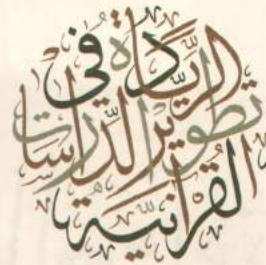 الرِّيَادَة فِي
تَطْوِيرِ الدِّرَاسَاتِ
القُرْآنِيَّة